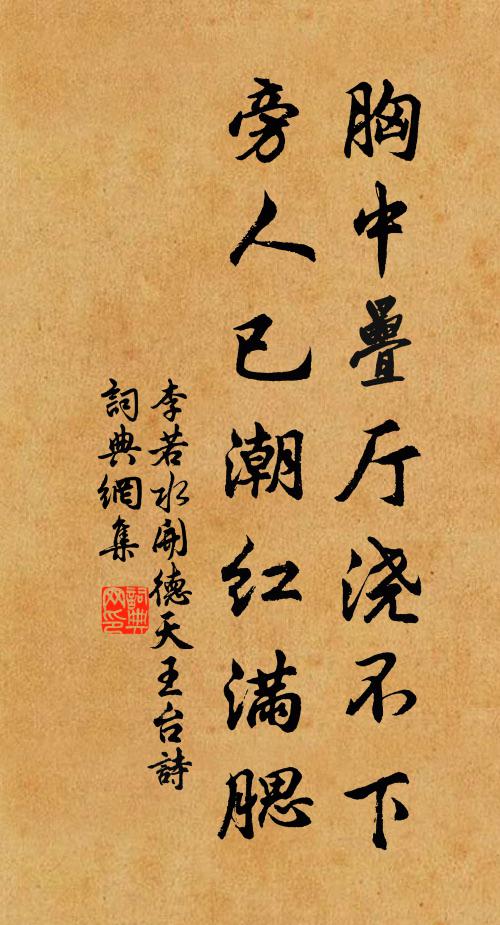 胸中疊厅浇不下
旁人已潮红满腮
李若水開德天王台詩
詞典網集
詞典
网印